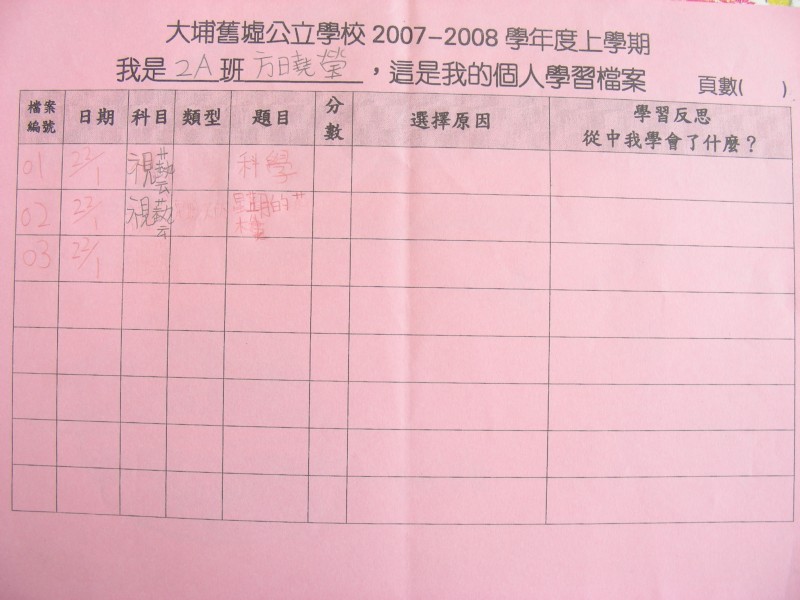 大埔舊墟公立學校 2007-2008 學年度上學期
我是 2A 班 方曉瑩 ，這是我的個人學習檔案 頁數( )
檔案編號 日期 科目 類型 題目 分數 選擇原因 學習反思 從中我學會了什麼？
01 22/1 視藝 科學
02 22/1 視藝 星期的
03 22/1